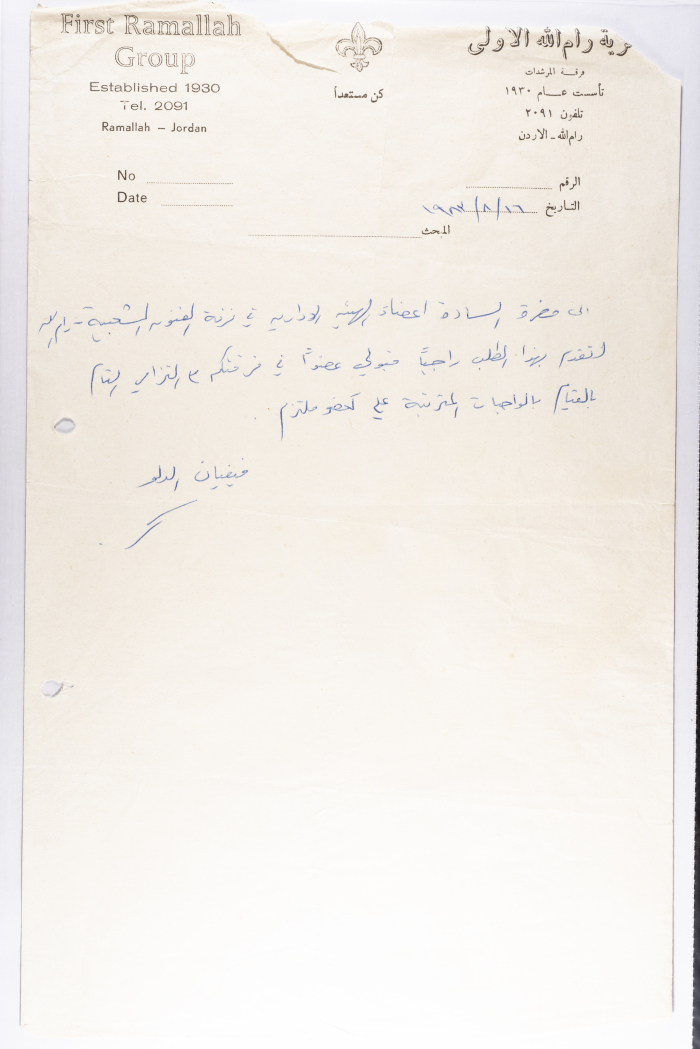 First Ramallah
Group
Established 1930
Tel. 2091
Ramallah – Jordan
No
Date
كن مستعداً
رية رام الله الاولى
فرقة المرشدات
تأسست عام ١٩٣٠
تلفون ٢٠٩١
رام الله - الاردن
الرقم
التاريخ ١٩٨٣/٨/١٦
المبحث
الى حضرة السادة اعضاء الهيئة الادارية في فرقة الفنون الشعبية - رام الله
اتقدم بهذا الطلب راجياً قبولي عضواً في فرقتكم مع التزامي التام
بالقيام بالواجبات المترتبة علي كعضو ملتزم .
فيفيان الدلو